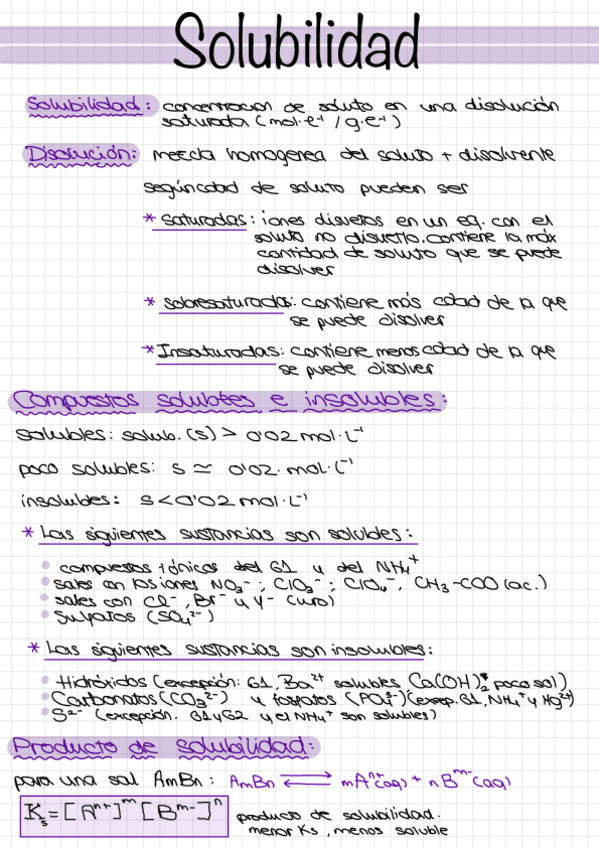 Solubilidad
Solubilidad: concentracion de soluto en una disolución
saturada (mol·l⁻¹ / g·l⁻¹)
Disolución: mezcla homogenea del soluto + disolvente
según cdad de soluto pueden ser
* Saturadas: iones disueltos en un eq. con el
soluto no disuelto. Contiene la máx
cantidad de soluto que se puede
disolver
* Sobresaturadas: contiene más cdad de la que
se puede disolver
* Insaturadas: contiene menos cdad de la que
se puede disolver
Compuestos solubles e insolubles:
solubles: solub. (s) > 0'02 mol·L⁻¹
poco solubles: s ≃ 0'02 mol·L⁻¹
insolubles: s < 0'02 mol·L⁻¹
* Las siguientes sustancias son solubles:
• compuestos iónicos del G1 y del NH₄⁺
• sales con los iones NO₃⁻; ClO₃⁻; ClO₄⁻, CH₃-COO (ac.)
• sales con Cl⁻, Br⁻ y I⁻
• Sulfatos (SO₄²⁻)
* Las siguientes sustancias son insolubles:
• Hidróxidos (excepción: G1, Ba²⁺ solubles Ca(OH)₂ poco sol)
• Carbonatos (CO₃²⁻) y fosfatos (PO₄³⁻) (excep. G1, NH₄⁺ y Hg²⁺)
• S²⁻ (excepción. G1 y G2 y el NH₄⁺ son solubles)
Producto de solubilidad:
para una sal AmBn: AmBn ⇌ mAⁿ⁺(aq) + nBᵐ⁻(aq)
Ks = [Aⁿ⁺]ᵐ [Bᵐ⁻]ⁿ producto de solubilidad.
menor Ks, menos soluble